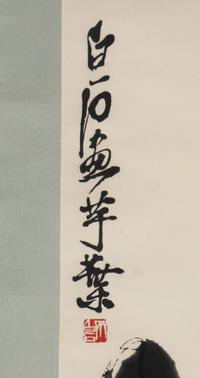 白石畫芋葉